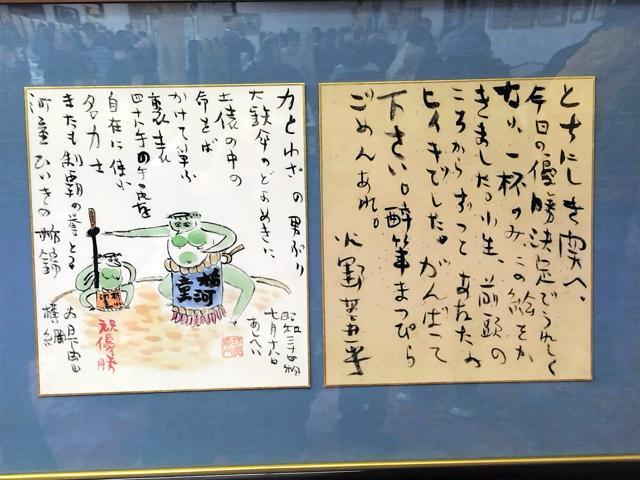 とちにしき関へ、
今日の優勝決定でうれしく
なり、一杯のみこの絵をか
きました。小生、前頭の
ころからずつとあなたの
ヒイキでした。がんばつて
下さい。酔筆まつぴら
ごめんあれ。
火野葦平
力とわざの男ぶり
大鉄傘のどよめきに
土俵の中の
命をば
かけて争ふ
裏表
四十八手の
自在に使ふ
名力士
またも制覇の誉とる
河童ひいきの栃錦
河童
祝優勝
昭和三十
七月十八日
あしへい